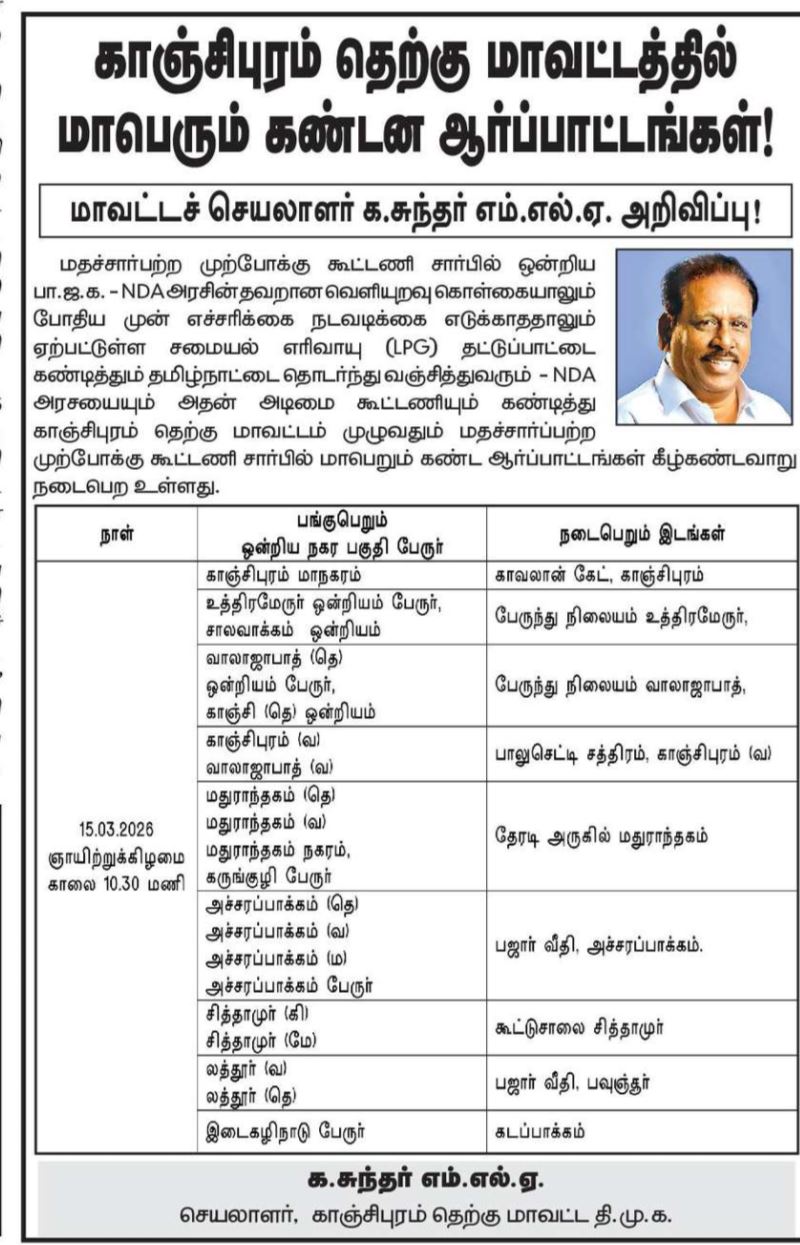 காஞ்சிபுரம் தெற்கு மாவட்டத்தில்
மாபெரும் கண்டன ஆர்ப்பாட்டங்கள்!
மாவட்டச் செயலாளர் க.சுந்தர் எம்.எல்.ஏ. அறிவிப்பு!
மதச்சார்பற்ற முற்போக்கு கூட்டணி சார்பில் ஒன்றிய
பா.ஜ.க. – NDA அரசின் தவறான வெளியுறவு கொள்கையாலும்
போதிய முன் எச்சரிக்கை நடவடிக்கை எடுக்காததாலும்
ஏற்பட்டுள்ள சமையல் எரிவாயு (LPG) தட்டுப்பாட்டை
கண்டித்தும் தமிழ்நாட்டை தொடர்ந்து வஞ்சித்துவரும் – NDA
அரசயையும் அதன் அடிமை கூட்டணியும் கண்டித்து
காஞ்சிபுரம் தெற்கு மாவட்டம் முழுவதும் மதச்சார்ப்பற்ற
முற்போக்கு கூட்டணி சார்பில் மாபெறும் கண்ட ஆர்ப்பாட்டங்கள் கீழ்கண்டவாறு
நடைபெற உள்ளது.
நாள்
பங்குபெறும்
ஒன்றிய நகர பகுதி பேரூர்
நடைபெறும் இடங்கள்
15.03.2026
ஞாயிற்றுக்கிழமை
காலை 10.30 மணி
காஞ்சிபுரம் மாநகரம்
காவலான் கேட், காஞ்சிபுரம்
உத்திரமேரூர் ஒன்றியம் பேரூர்,
சாலவாக்கம் ஒன்றியம்
பேருந்து நிலையம் உத்திரமேரூர்,
வாலாஜாபாத் (தெ)
ஒன்றியம் பேரூர்,
காஞ்சி (தெ) ஒன்றியம்
பேருந்து நிலையம் வாலாஜாபாத்,
காஞ்சிபுரம் (வ)
வாலாஜாபாத் (வ)
பாலுசெட்டி சத்திரம், காஞ்சிபுரம் (வ)
மதுராந்தகம் (தெ)
மதுராந்தகம் (வ)
மதுராந்தகம் நகரம்,
கருங்குழி பேரூர்
தேரடி அருகில் மதுராந்தகம்
அச்சரப்பாக்கம் (தெ)
அச்சரப்பாக்கம் (வ)
அச்சரப்பாக்கம் (ம)
அச்சரப்பாக்கம் பேரூர்
பஜார் வீதி, அச்சரப்பாக்கம்.
சித்தாமூர் (கி)
சித்தாமூர் (மே)
கூட்டுசாலை சித்தாமூர்
லத்தூர் (வ)
லத்தூர் (தெ)
பஜார் வீதி, பவுஞ்சூர்
இடைகழிநாடு பேரூர்
கடப்பாக்கம்
க.சுந்தர் எம்.எல்.ஏ.
செயலாளர், காஞ்சிபுரம் தெற்கு மாவட்ட தி.மு.க.